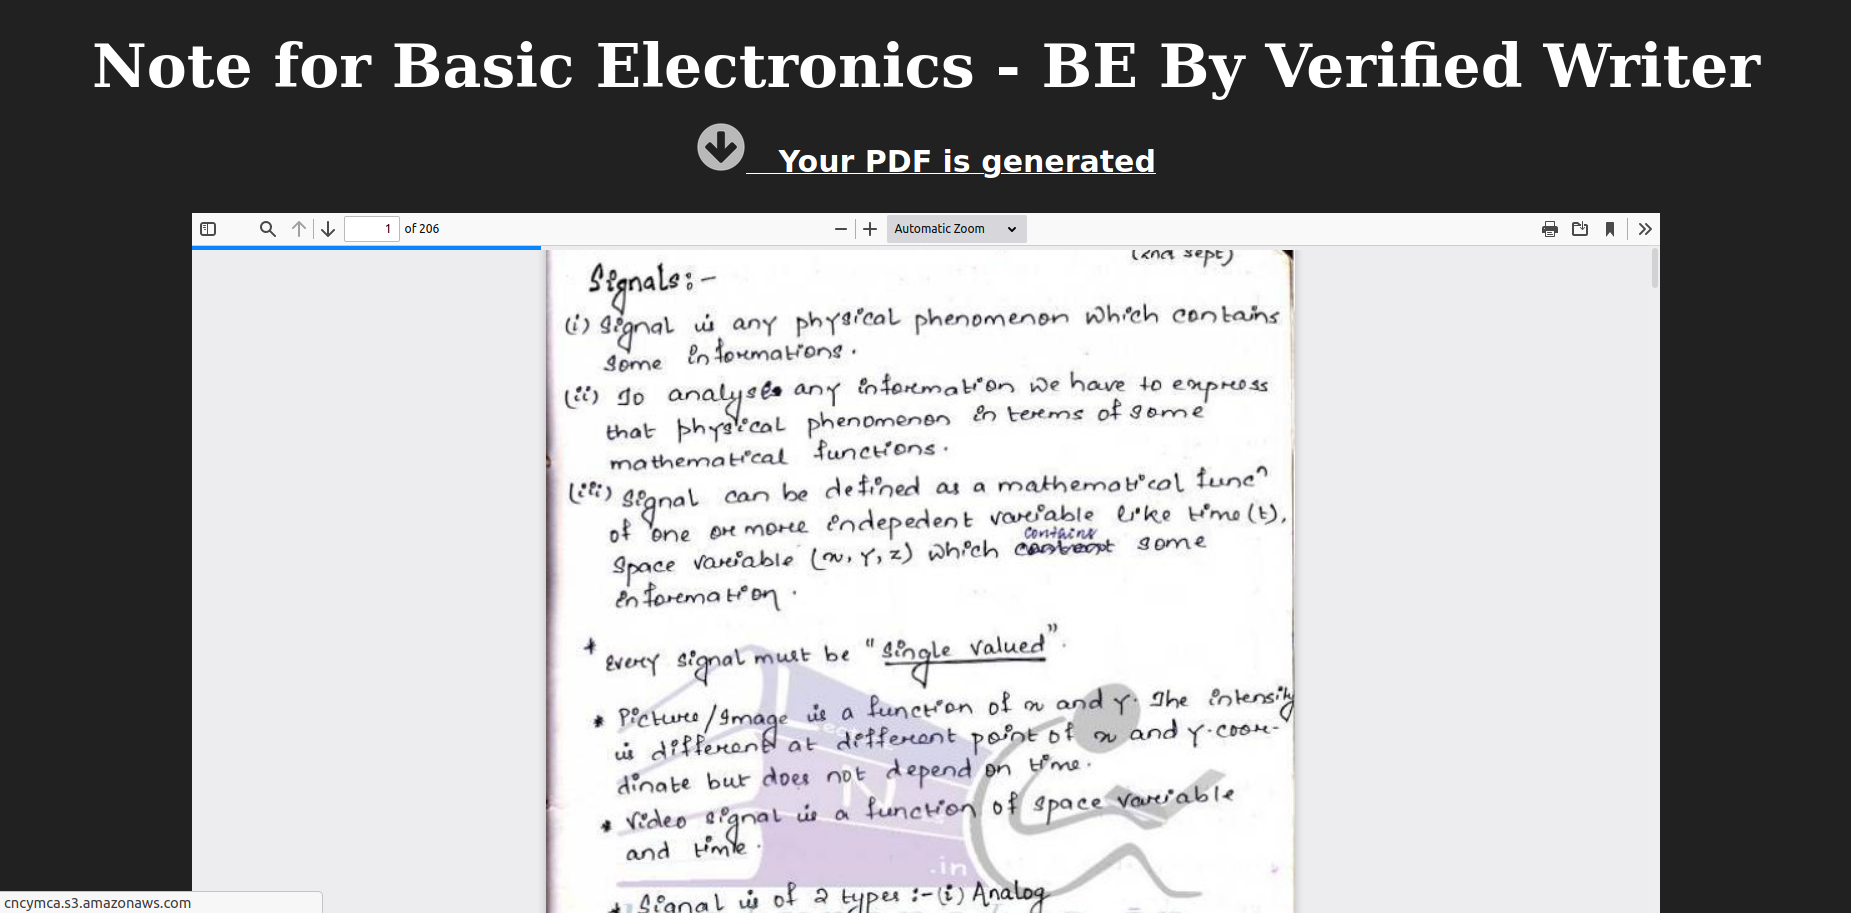 Note for Basic Electronics - BE By Verified Writer
Your PDF is generated
1 of 206
Automatic Zoom
(2nd sept)
Signals:-
(i) Signal is any physical phenomenon which contains
some informations.
(ii) To analyse any information we have to express
that physical phenomenon in terms of some
mathematical functions.
(iii) Signal can be defined as a mathematical funcn
of one or more indepedent variable like time(t),
contains
space variable (x, Y, z) which some
information.
* Every signal must be "single valued".
* Picture/Image is a function of x and Y. The intensity
is different at different point of x and Y-coor-
dinate but does not depend on time.
* Video signal is a function of space variable
and time.
* Signal is of 2 types :-(i) Analog
.in
cncymca.s3.amazonaws.com